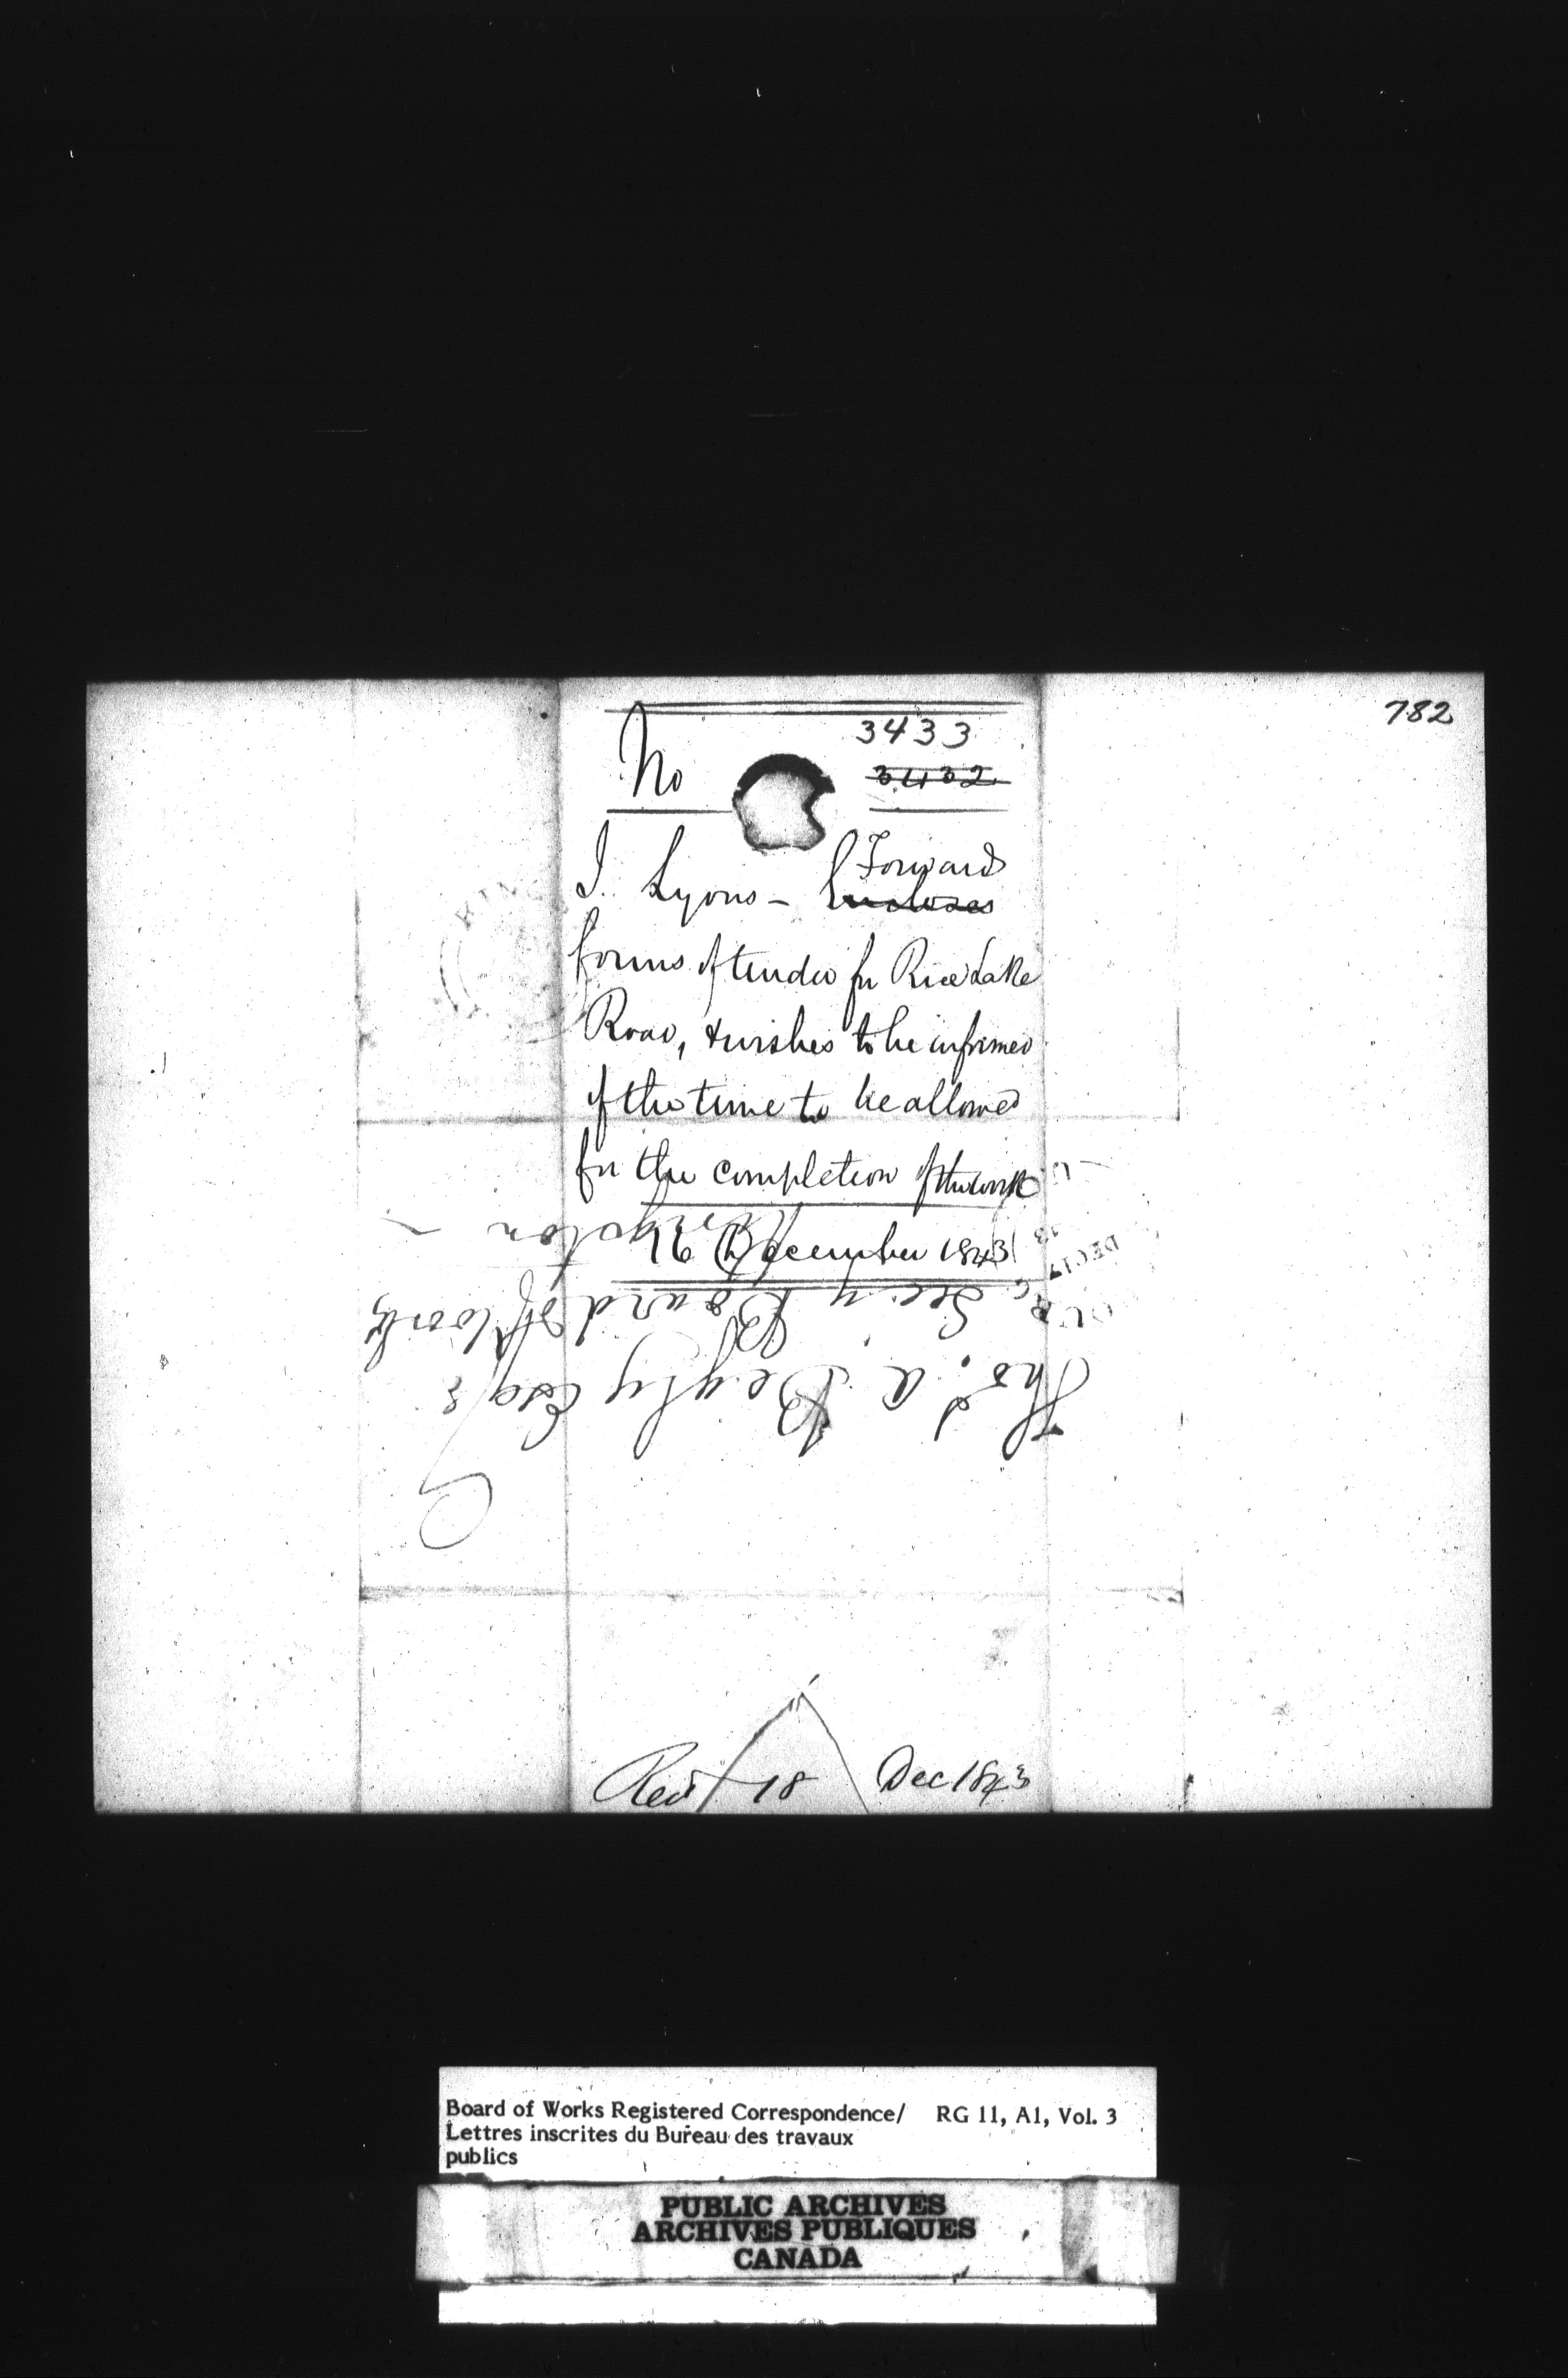 782
3433
No 3432
J. Lyons - Forward
Encloses
forms of tender for Rice Lake
Road, & wishes to be informed
of the time to be allowed
for the completion of the work
16 December 1843
Thos. A Begly Esqr
Secy Board of Works
Kingston
DEC 17
Recd 18 Dec 1843
Board of Works Registered Correspondence/ RG 11, A1, Vol. 3
Lettres inscrites du Bureau des travaux
publics
PUBLIC ARCHIVES
ARCHIVES PUBLIQUES
CANADA